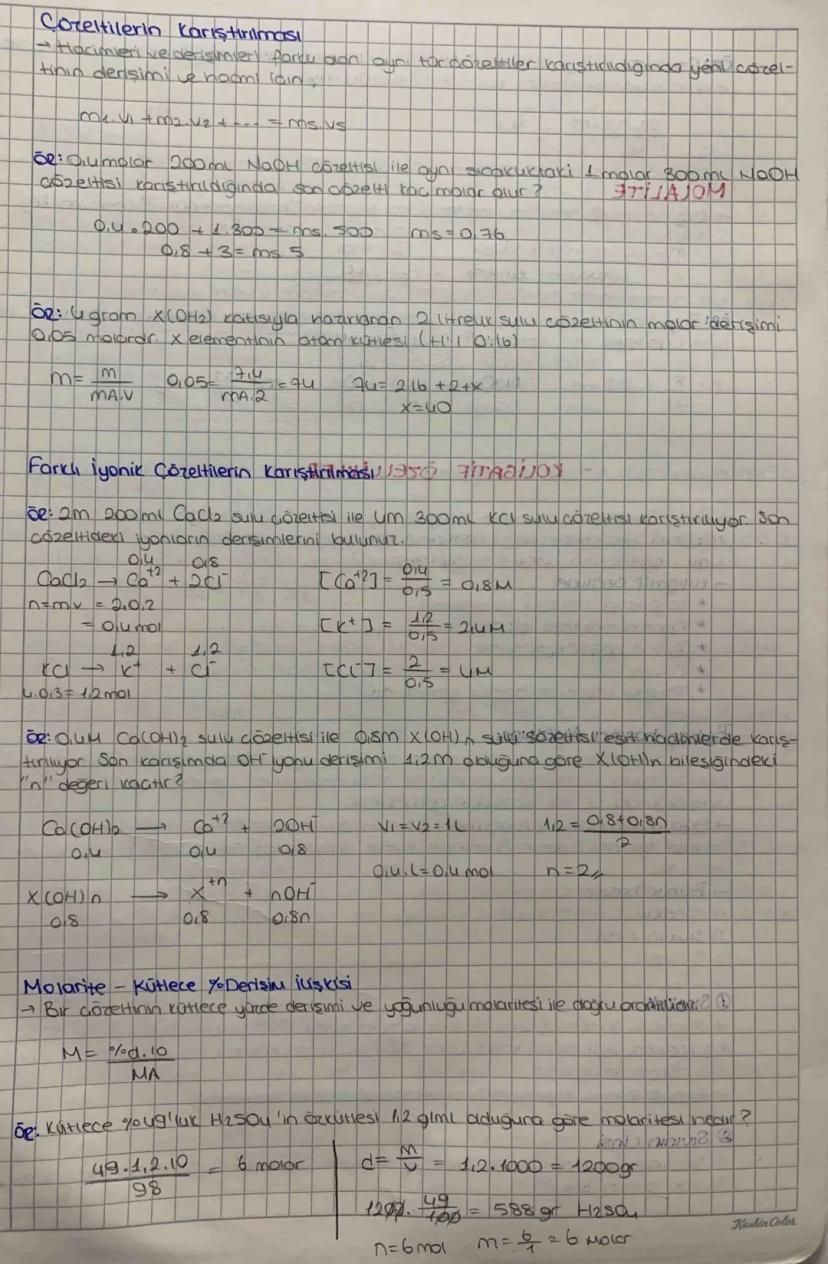 Çözeltilerin Karıştırılması
→ Hacimleri ve derişimleri farklı olan aynı tür çözeltiler karıştırıldığında yeni çözel-
tinin derişimi ve hacmi için;
m1.v1 + m2.v2 + .... = ms.vs
ÖR: 0,4 molar 200 ml NaOH çözeltisi ile aynı sıcaklıktaki 1 molar 300 ml NaOH
çözeltisi karıştırıldığında son çözelti kaç molar olur? MOLALİTE
0,4.200 + 1.300 = ms.500 ms = 0,76
0,8 + 3 = ms.5
ÖR: 4 gram X(OH2) katısıyla hazırlanan 2 litrelik sulu çözeltinin molar derişimi
0,05 molardır. X elementinin atom kütlesi (H:1 O:16)
m = m/mA.V 0,05 = 7,4/mA.2 = 74 74 = 2.16 + 2 + x
x = 40
Farklı İyonik Çözeltilerin Karıştırılması KOLİGATİF
ÖR: 2m 200ml CaCl2 sulu çözeltisi ile 4m 300ml KCl sulu çözeltisi karıştırılıyor. Son
çözeltideki iyonların derişimlerini bulunuz.
0,4 0,8
CaCl2 → Ca+2 + 2Cl- [Ca+2] = 0,4/0,5 = 0,8M
n = m.v = 2.0,2
= 0,4 mol [K+] = 1,2/0,5 = 2,4M
1,2 1,2
KCl → K+ + Cl- [Cl-] = 2/0,5 = 4M
4.0,3 = 1,2 mol
ÖR: 0,4M Ca(OH)2 sulu çözeltisi ile 0,8m X(OH)n sulu çözeltisi eşit hacimlerde karış-
tırılıyor. Son karışımda OH- iyonu derişimi 1,2m olduğuna göre X(OH)n bileşiğindeki
"n" değeri kaçtır?
Ca(OH)2 → Ca+2 + 2OH- V1 = V2 = 1L 1,2 = 0,8+0,8n/2
0,4 0,4 0,8
0,4.1 = 0,4 mol n = 2
X(OH)n → X+n + nOH-
0,8 0,8 0,8n
Molarite - Kütlece % Derişim İlişkisi
→ Bir çözeltinin kütlece yüzde derişimi ve yoğunluğu molaritesi ile doğru orantılıdır.
M = %d.10/MA
ÖR: Kütlece %49'luk H2SO4'in özkütlesi 1,2 g/ml olduğuna göre molaritesi nedir?
49.1,2.10/98 = 6 molar d = m/v = 1,2.1000 = 1200gr
1200.49/100 = 588 gr H2SO4
n = 6 mol m = 6/1 = 6 Molar
KeskinColor